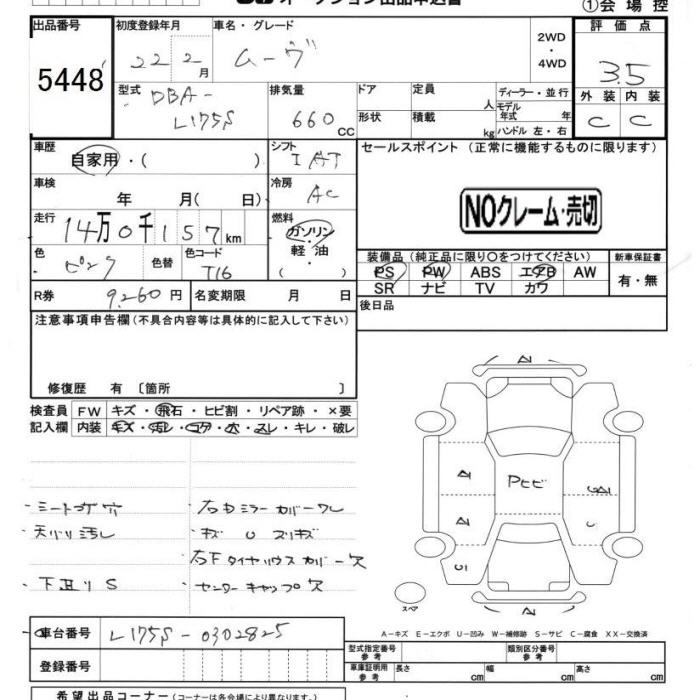 ①会場控
出品番号
5448
初度登録年月
22 2月
車名・グレード
ムーヴ
2WD
・
4WD
評価点
3.5
外装 内装
C C
型式
DBA-
L175S
排気量
660
CC
ドア
形状
定員
人
積載
kg
ディーラー・並行
モデル
年式 年
ハンドル 左・右
車歴
自家用・( )
シフト
IAT
車検
年 月(日)
冷房
AC
走行
14万0千157km
燃料
ガソリン
軽油
( )
色
ピンク
色替
色コード
T16
R券
9,260円
名変期限 月 日
セールスポイント (正常に機能するものに限ります)
NOクレーム・売切
装備品(純正品に限り〇をつけてください)
PS PW ABS エアB AW
SR ナビ TV カワ
新車保証書
有・無
後日品
注意事項申告欄(不具合内容等は具体的に記入して下さい)
修復歴 有〔箇所 〕
検査員
記入欄
FW キズ・飛石・ヒビ割・リペア跡・×要
内装 キズ・汚レ・コゲ・穴・スレ・キレ・破レ
・シートコゲ穴
天バリ汚レ
・下廻りS
・右Dミラーカバーワレ
キズ U スリキズ
右Fタイヤハウスカバー欠
・センターキャップ欠
A
A
A
C
Pヒビ
C
A
スペア
A-キズ E-エクボ U-凹み W-補修跡 S-サビ C-腐食 XX-交換済
車台番号
L175S-0302825
登録番号
型式指定番号
参考
類別区分番号
参考
車庫証明用
参考
長さ cm
幅 cm
高さ cm
希望出品コーナー(コーナーは各会場により異なります)